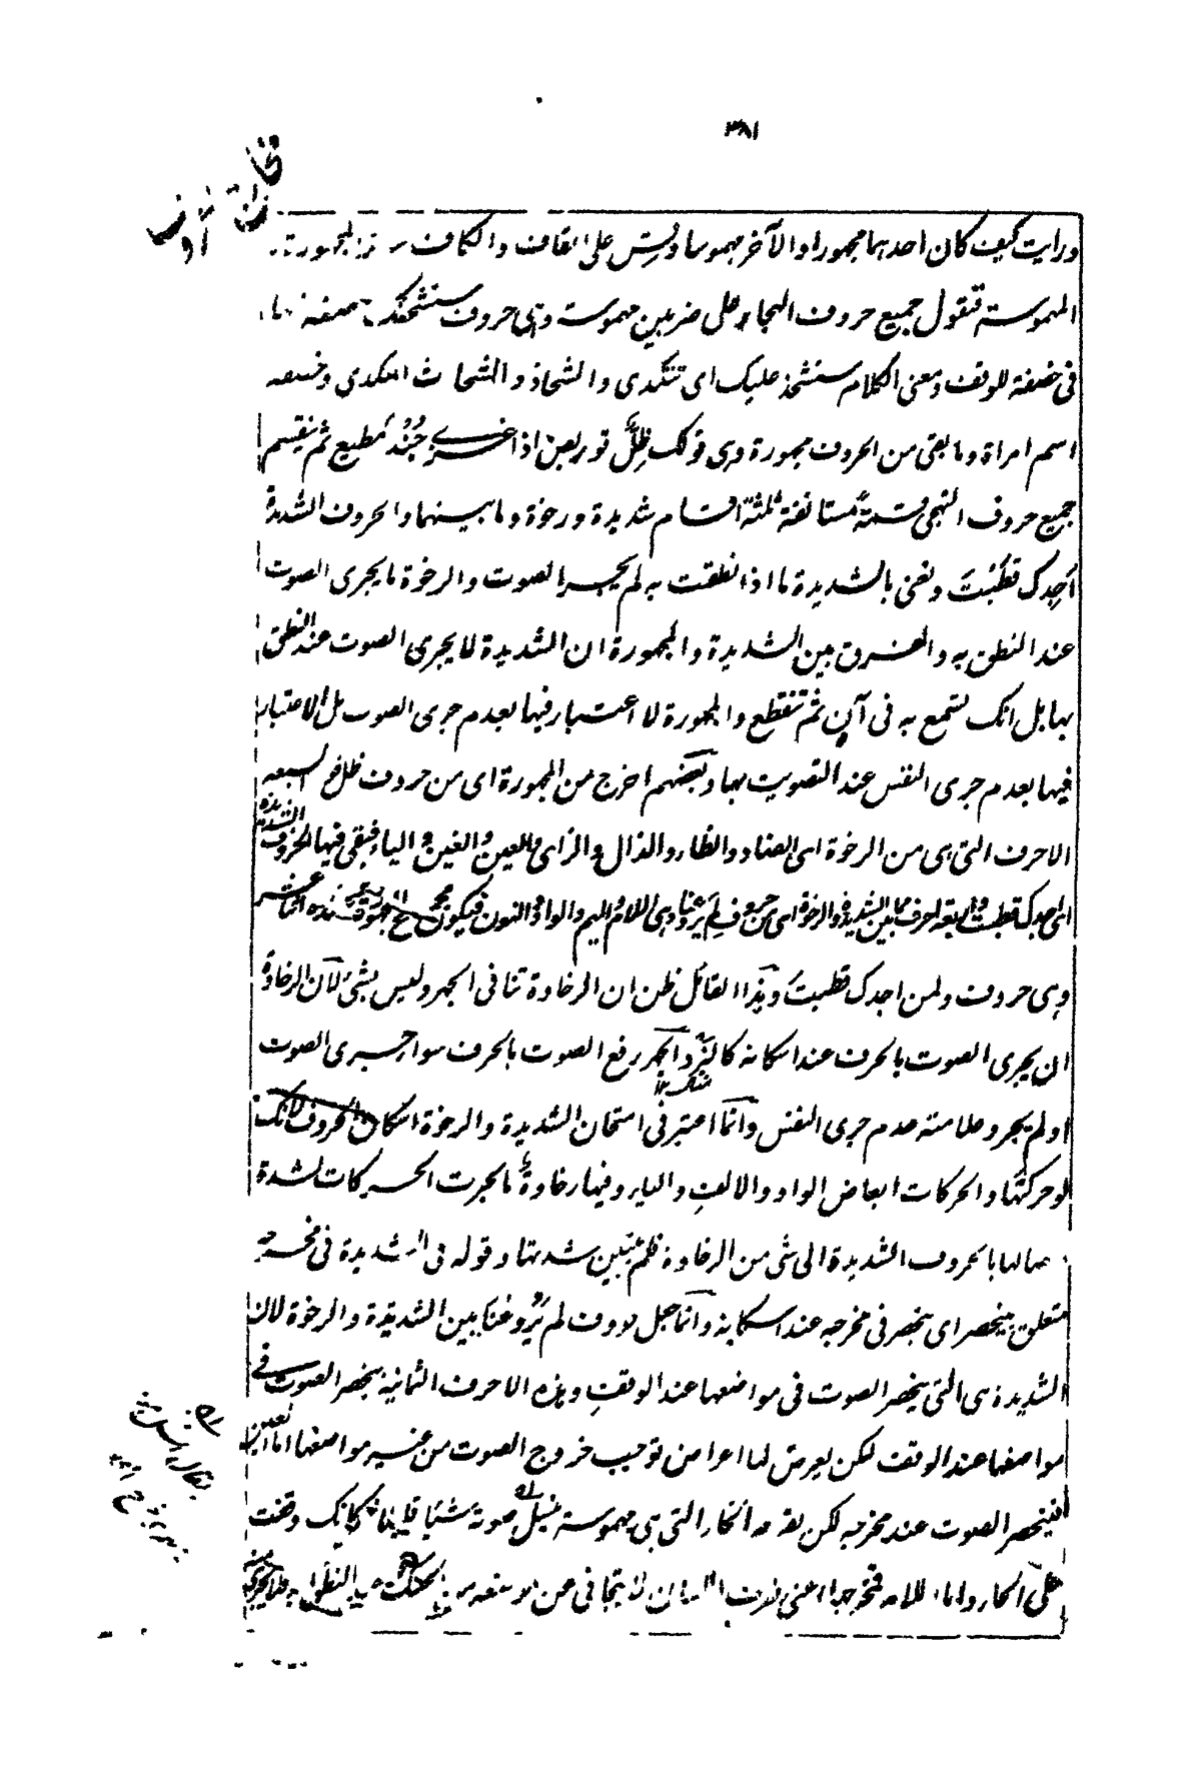 ٣٨١
ورایت کیف کان احدہما مجهورا والآخر مهموسا وقس علی القاف والکاف المجهورة
المهموسة فنقول جمیع حروف الهجاء علی ضربین مهموسة وہی حروف ستشحثک خصفه
فی خصفة للوقف ومعنی الکلام ستشحذ علیک ای تتکدی والشحاذ والشحاث المکدی وخصفه
اسم امراة وما بقی من الحروف مجهورة وہی قولک ظِلُّ قو ربض اذا غزی جُنْد مطیع ثم ینقسم
جمیع حروف التهجی قسمةً مستانفة ثلثة اقسام شدیدة ورخوة وما بینهما والحروف الشدیدة
أجِدُک قطَبْتَ ونعنی بالشدیدة ما اذا نطقت به لم یجر الصوت والرخوة ما یجری الصوت
عند النطق به والفرق بین الشدیدة والمجهورة ان الشدیدة لا یجری الصوت عند النطق
بها بل انک تسمع به فی آنٍ ثم تنقطع والمجهورة لا اعتبار فیها بعدم جری الصوت بل الاعتبار
فیها بعدم جری النفس عند التصویت بها وبعضهم اخرج من المجهورة ای من حروف ظل قو السبعه
الاحرف التی ہی من الرخوة ای الضاد والظاء والذال والزای والعین والغین والیاء فیبقی فیها الحروف الشدیدة
ای اجدک قطبت واربعة احرف مما بین الشدیدة والرخوة ای من حروف لم یروعنا وہی اللام والمیم والواو والنون فیکون مجموع المجهورة عنده اثنا عشر
وہی حروف ولمن اجدک قطبتَ وہذا القائل ظن ان الرخاوة تنافی الجهر ولیس بشئ لأن الرخاوة
ان یجری الصوت بالحرف عند اسکانه کالنز والجهر رفع الصوت بالحرف سواء جری الصوت
اولم یجر وعلامته عدم جری النفس وانما اعتبر فی امتحان الشدیدة والرخوة اسکان الحروف لانک
لو حرکتها والحرکات ابعاض الواو والالف والیاء وفیها رخاوةٌ ما لجرت الحرکات لشدة
اتصالها بالحروف الشدیدة الی شئ من الرخاوة فلم تتبین شدتها وقوله فی الشدیدة فی مخرجه
متعلق بینحصر ای ینحصر فی مخرجه عند اسکانه وانما جعل حروف لم یَرْوِ عنا بین الشدیدة والرخوة لان
الشدیدة ہی التی ینحصر الصوت فی مواضعها عند الوقف وہذه الاحرف الثمانیة ینحصر الصوت فی
مواضعها عند الوقف لکن یعرض لها اعراض توجب خروج الصوت من غیر مواضعها اما العین
فینحصر الصوت عند مخرجه لکن لقربه من الحاء التی ہی مهموسة ینسل صوته شیئا قلیلا فکانک وقفت
علی الحاء واما اللام فمخرجها اعنی طرف اللسان لا یتجافی عن موضعه من الحنک عند النطق به فلا یجری